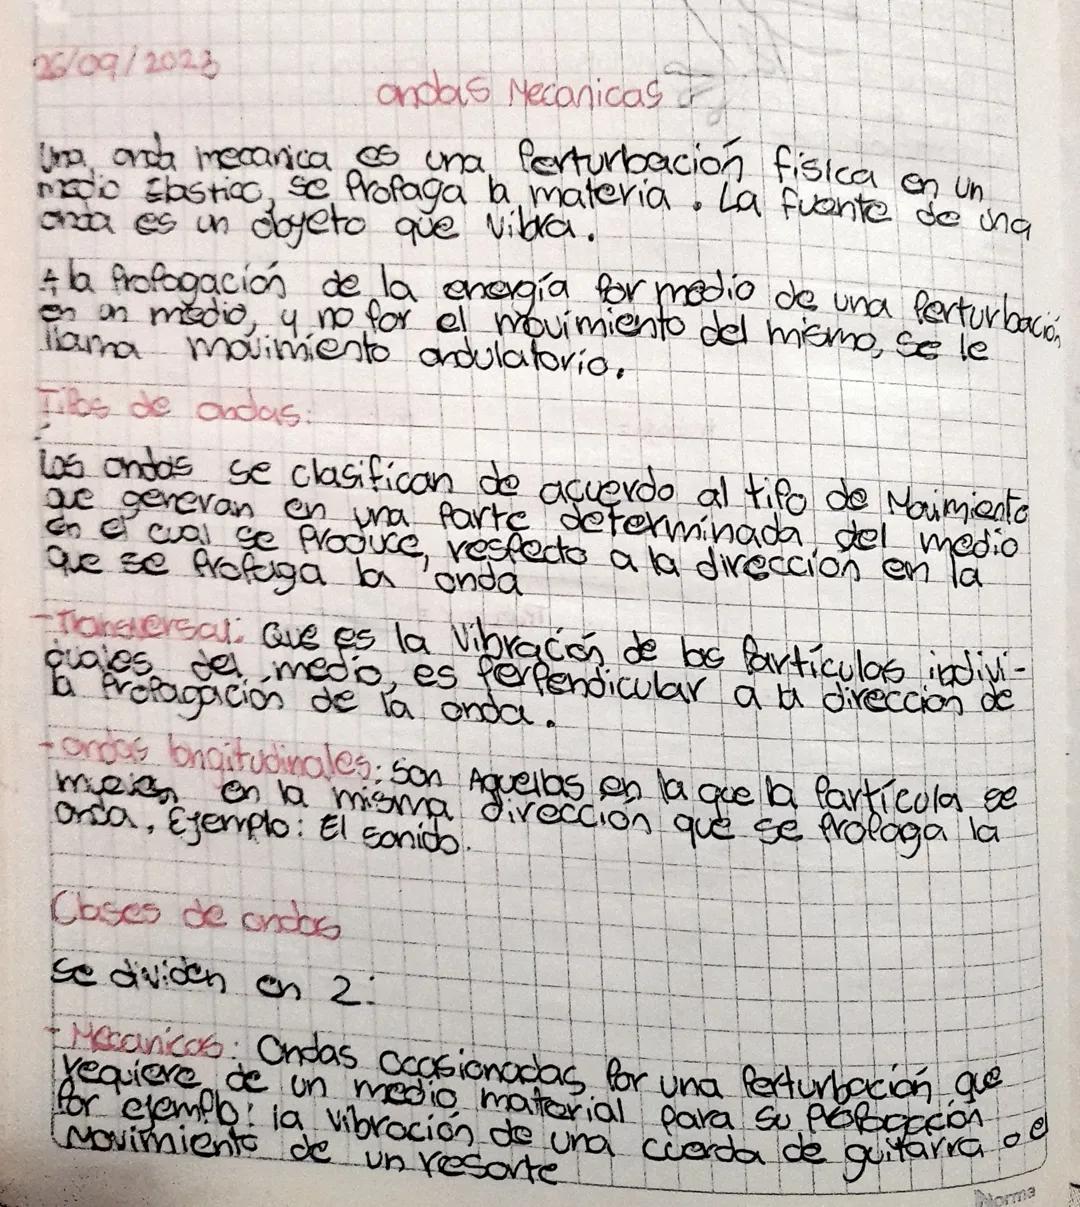 26/09/2023
ondas Mecanicas
Una onda mecanica es una Perturbación física en un
medio Elastico, se Propaga la materia. La fuente de una
onda es un objeto que vibra.
+ la Propagación de la energía Por medio de una Perturbación
en un medio, y no por el movimiento del mismo, se le
llama movimiento ondulatorio.
Tipos de ondas:
Las ondas se clasifican de acuerdo al tipo de Movimiento
que generan en una Parte determinada del medio
en el cual se Produce, respecto a la dirección en la
que se Propaga la onda
- Transversal: Que es la vibración de las Partículas indivi-
duales del medio, es PerPendicular a la direccion de
la Propagación de la onda.
- ondas longitudinales: son Aquellas en la que la Partícula se
mueven en la misma dirección que se Propaga la
onda, Ejemplo: El sonido.
Clases de ondas
se dividen en 2:
- Mecanicas: Ondas ocasionadas Por una Perturbación que
requiere de un medio material para su Propagación
Por ejemplo: la vibración de una cuerda de guitarra o el
Movimiento de un resorte
Norma